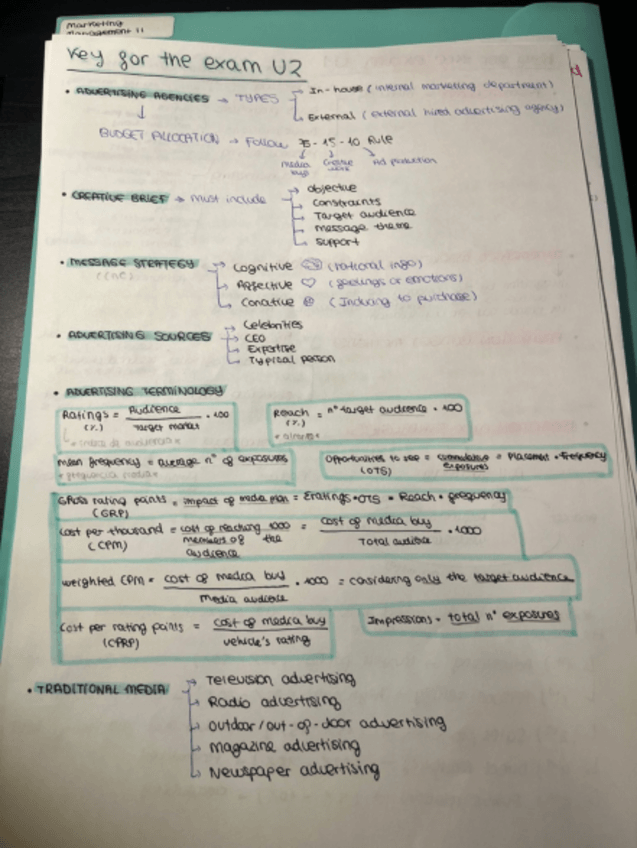 Marketing
Management II
Key for the exam U2
• ADVERTISING AGENCIES → TYPES → In-house (internal marketing department)
→ External (external hired advertising agency)
↓
BUDGET ALLOCATION → FOLLOW 75-15-10 Rule
media buy creative work Ad production
• CREATIVE BRIEF → must include → objective
→ constraints
→ Target audience
→ message theme
→ support
• MESSAGE STRATEGY → Cognitive (rational info)
→ Affective ♡ (feelings or emotions)
→ Conative (Inducing to purchase)
• ADVERTISING SOURCES → Celebrities
→ CEO
→ Expertise
→ Typical person
• ADVERTISING TERMINOLOGY
Ratings = Audience / Target market · 100
(%)
Reach = nº target audience · 100
(%)
mean frequency = average nº of exposures
• frecuencia media •
Opportunities to see = cummulative exposures = Placement · Frequency
(OTS)
Gross rating points = impact of media plan = Σratings · OTS = Reach · frequency
(GRP)
Cost per thousand = cost of reaching 1000 members of the audience = cost of media buy / Total audience · 1000
(CPM)
weighted CPM = cost of media buy / media audience · 1000 = considering only the target audience
Cost per rating points = cost of media buy / vehicle's rating
(CPRP)
Impressions = total nº exposures
• TRADITIONAL MEDIA → Television advertising
→ Radio advertising
→ outdoor/out-of-door advertising
→ magazine advertising
→ Newspaper advertising